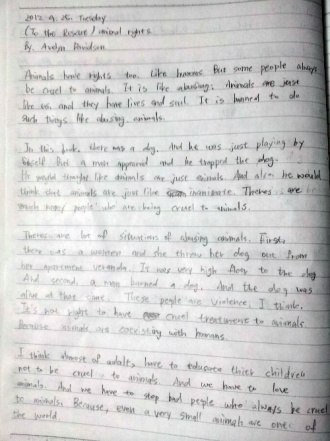 2012. 9. 25. Tuesday
(To the Rescue) animal rights
By. Avelyn Davidson
Animals have rights too. Like humans. But some people always
be cruel to animals. It is like abusing. Animals are just
like us, and they have lives and soul. It is banned to do
such things like abusing animals.
In this book, there was a dog. And he was just playing by
himself. But a man appeared and he trapped the dog.
He would thought like animals are just animals. And also he would
think that animals are just like inanimate. Theres are
much many people who are being cruel to animals.
Theres are lot of situations of abusing animals. First,
there was a women and she threw her dog out from
her apartment veranda. It was very high floor to the dog.
And second, a man burned a dog. And the dog was
alive at that time. These people are violence, I think.
It's not right to have cruel treatment to animals
because animals are coexisting with humans.
I think almost of adults, have to educate their children
not to be cruel to animals. And we have to love
animals. And we have to stop bad people who always be cruel
to animals. Because, even a very small animals are one of
the world